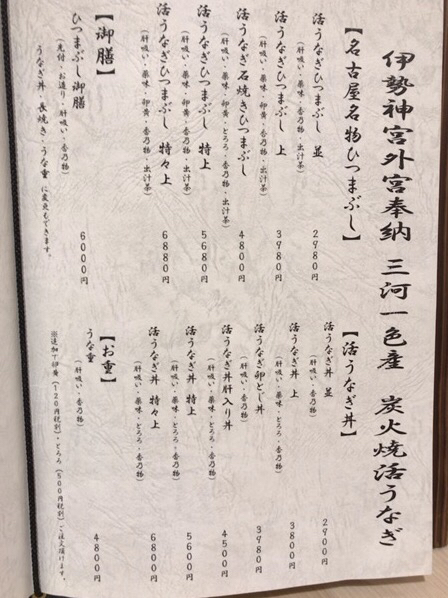 伊勢神宮外宮奉納 三河一色産 炭火焼活うなぎ
【名古屋名物ひつまぶし】
活うなぎひつまぶし 並 2980円
(肝吸い・薬味・香乃物・出汁茶)
活うなぎひつまぶし 上 3980円
(肝吸い・薬味・香乃物・出汁茶)
活うなぎ石焼きひつまぶし 4800円
(肝吸い・薬味・卵黄・とろろ・香乃物・出汁茶)
活うなぎひつまぶし 特上 5680円
(肝吸い・薬味・卵黄・香乃物・出汁茶)
活うなぎひつまぶし 特々上 6880円
(肝吸い・薬味・卵黄・香乃物・出汁茶)
【御膳】
ひつまぶし御膳 6000円
(先付・お造り・肝吸い・香乃物)
うなぎ丼・長焼き・うな重 に変更もできます。
【活うなぎ丼】
活うなぎ丼 並 2900円
(肝吸い・香乃物)
活うなぎ丼 上 3800円
(肝吸い・薬味・とろろ・香乃物)
活うなぎ卵とじ丼 3980円
(肝吸い・香乃物)
活うなぎ丼肝入り丼 4500円
(肝吸い・薬味・とろろ・香乃物)
活うなぎ丼 特上 5600円
(肝吸い・薬味・とろろ・香乃物)
活うなぎ丼 特々上 6800円
(肝吸い・薬味・とろろ・香乃物)
【お重】
うな重 4800円
(肝吸い・香乃物)
※追加で卵黄(120円税別)・とろろ(500円税別)ご注文頂けます。